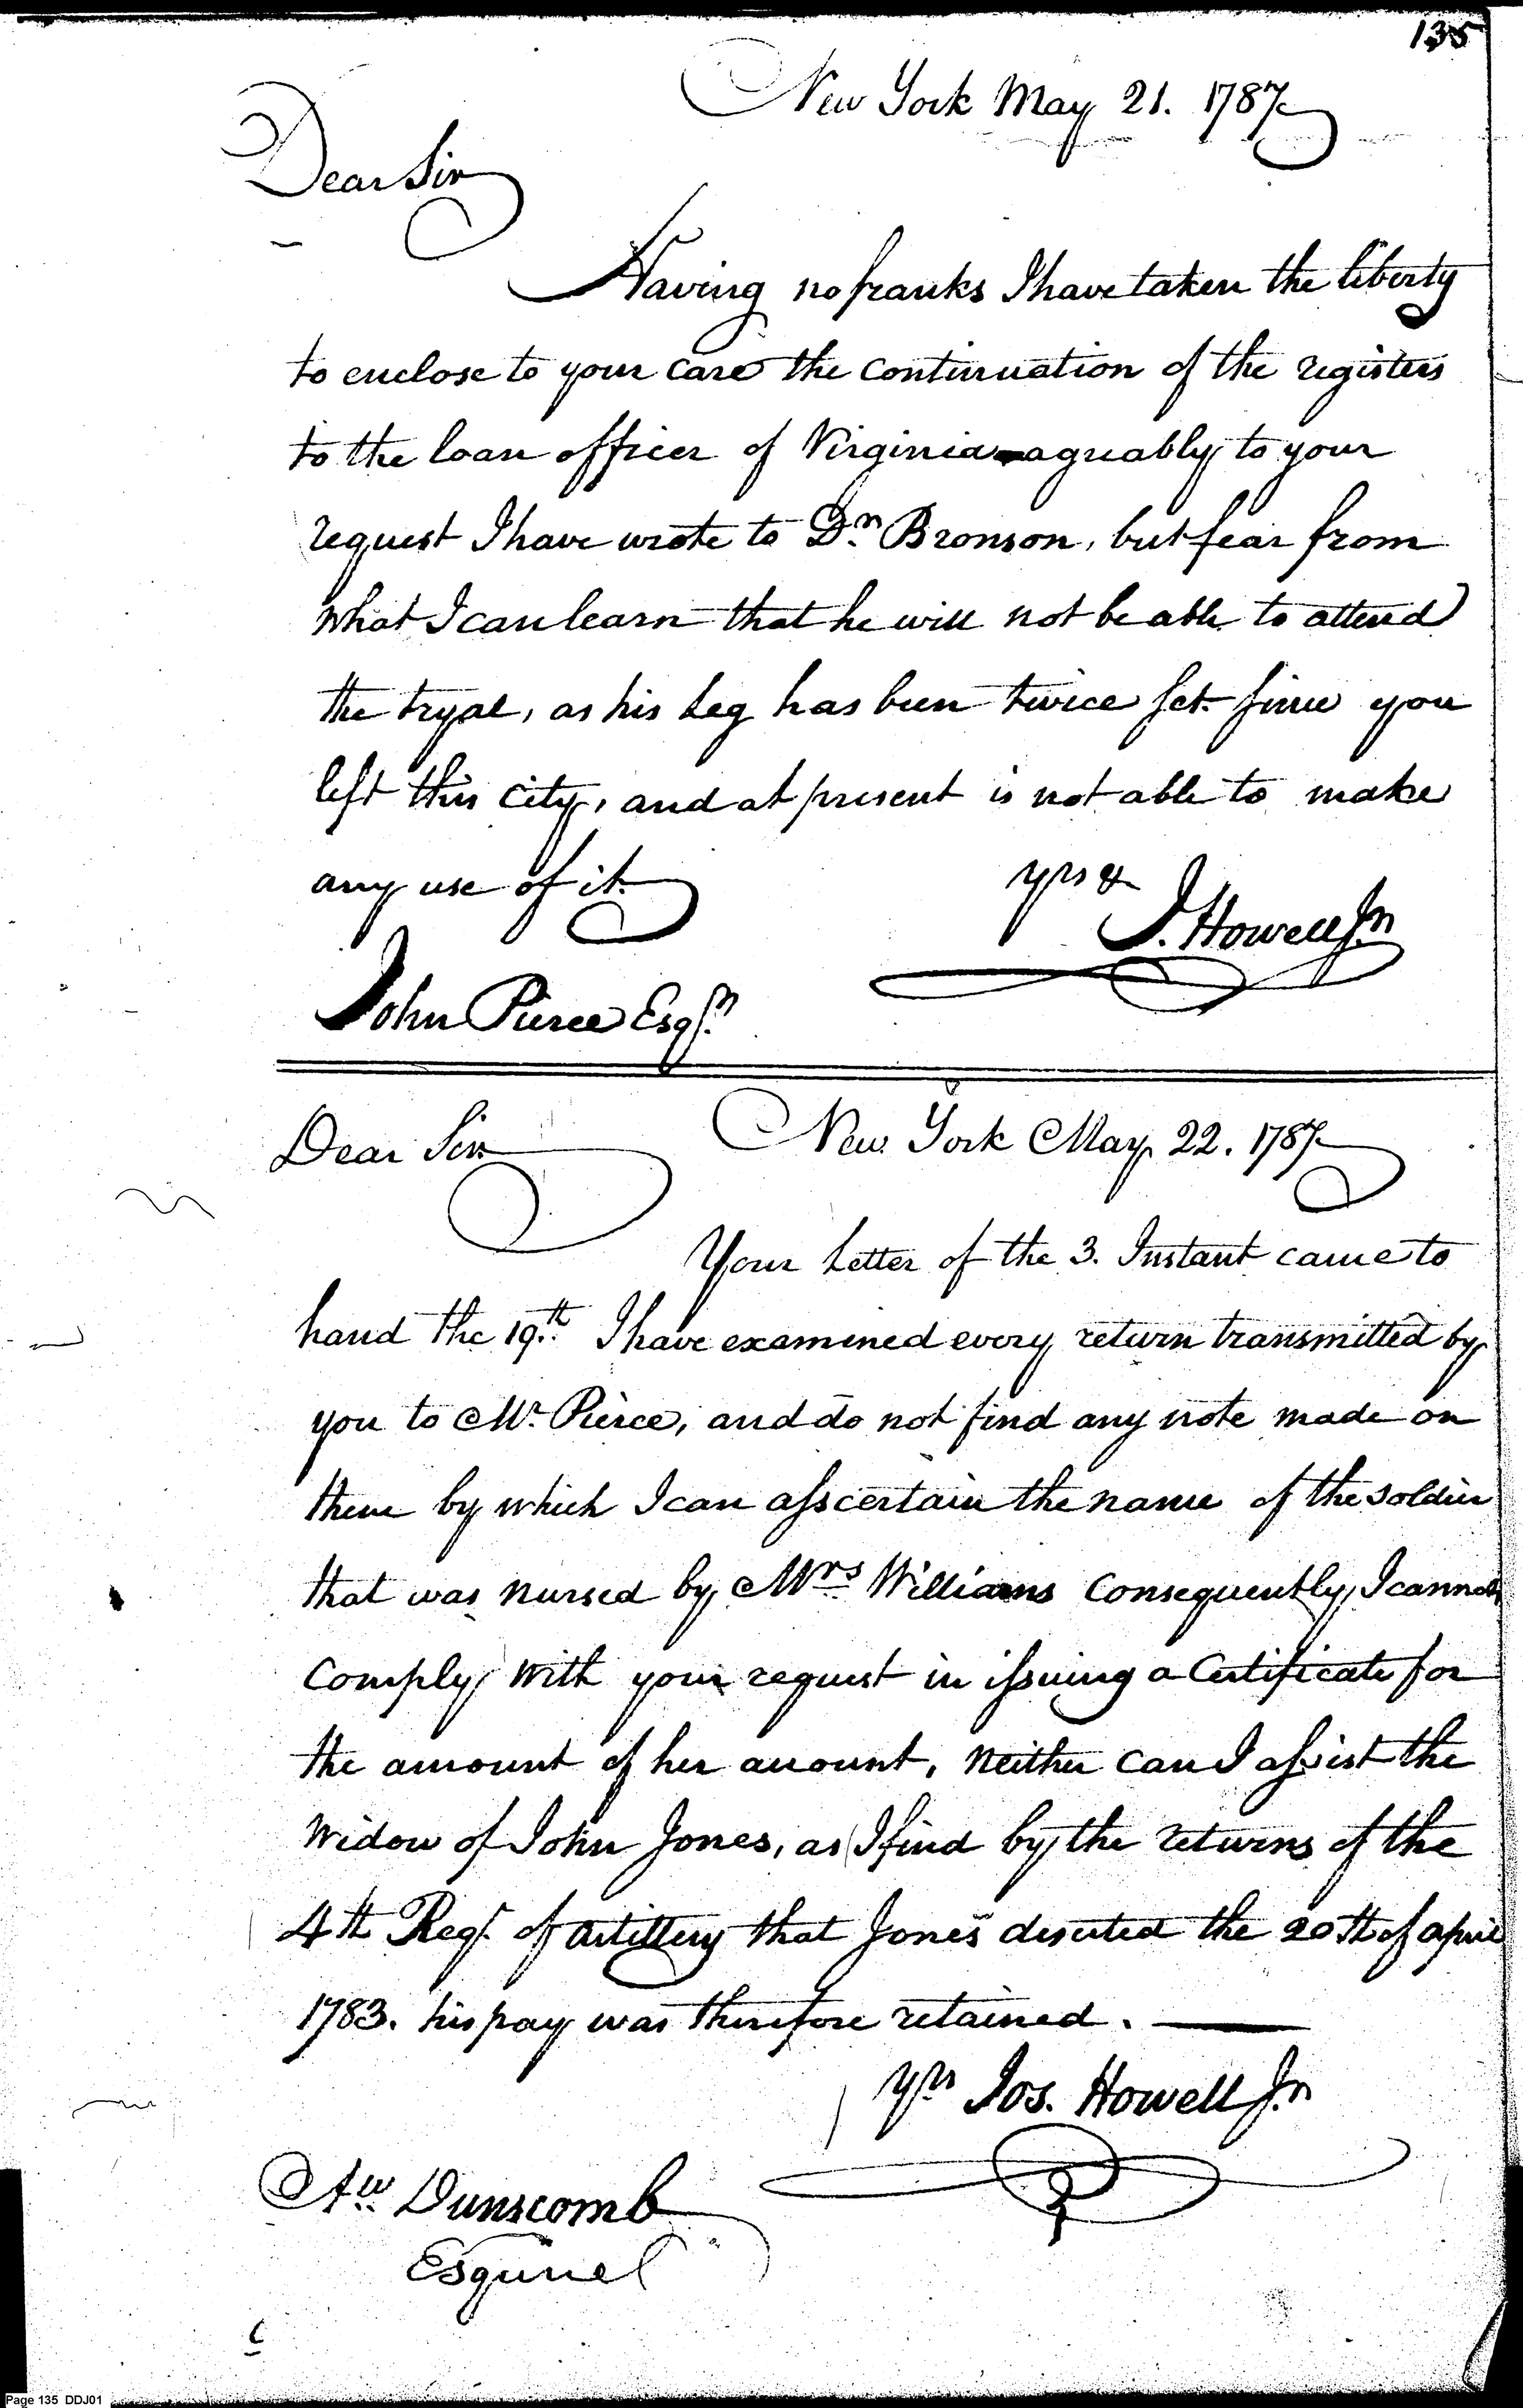 135
New York May 21. 1787
Dear Sir
Having no franks I have taken the liberty
to enclose to your care the continuation of the registers
to the loan officer of Virginia agreably to your
request I have wrote to Dr. Bronson, but fear from
what I can learn that he will not be able to attend
the tryal, as his Leg has been twice set since you
left this City, and at present is not able to make
any use of it.
yrs &
J. Howell Jr
John Pierce Esqr.
Dear Sir
New York May 22. 1787
Your Letter of the 3. Instant came to
hand the 19.th I have examined every return transmitted by
you to Mr. Pierce, and do not find any note made on
them by which I can asscertain the name of the soldier
that was nursed by Mrs Williams Consequently, I cannot
Comply with your request in issuing a Certificate for
the amount of her account, neither can I assist the
Widow of John Jones, as I find by the returns of the
4th Regt. of artillery that Jones deserted the 20th of april
1783. his pay was therefore retained.
Yrs Jos. Howell Jr
Aw. Dunscomb
Esquire
Page 135 DDJ01